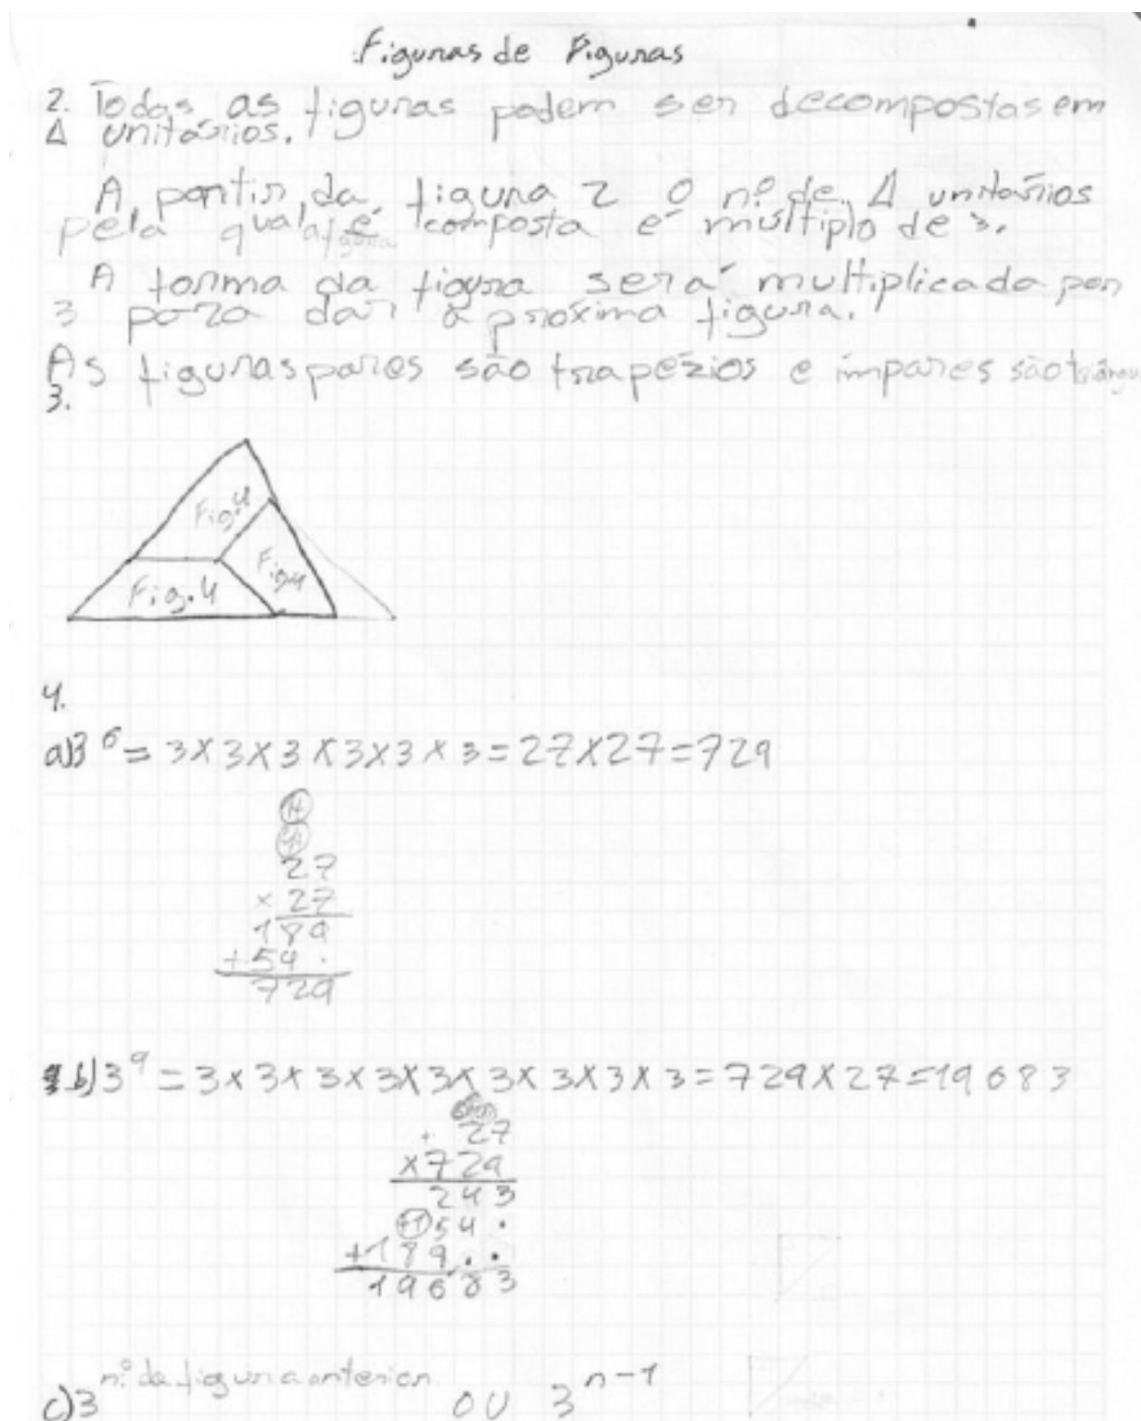 Figuras de Figuras
2. Todas as figuras podem ser decompostas em
Δ unitários.
A partir da figura 2 o nº de Δ unitários
pela qual a figura é composta é múltiplo de 3.
A forma da figura será multiplicada por
3 para dar a próxima figura.
As figuras pares são trapézios e ímpares são triângu
3.
Fig.4
Fig.4
Fig.4
4.
a) 3⁶ = 3×3×3×3×3×3=27×27=729
27
× 27
189
+54 .
729
b) 3⁹ = 3×3×3×3×3×3×3×3×3=729×27=19683
27
×729
243
+1 54 .
+189 . .
19683
c) 3^nº da figura anterior ou 3^n-1